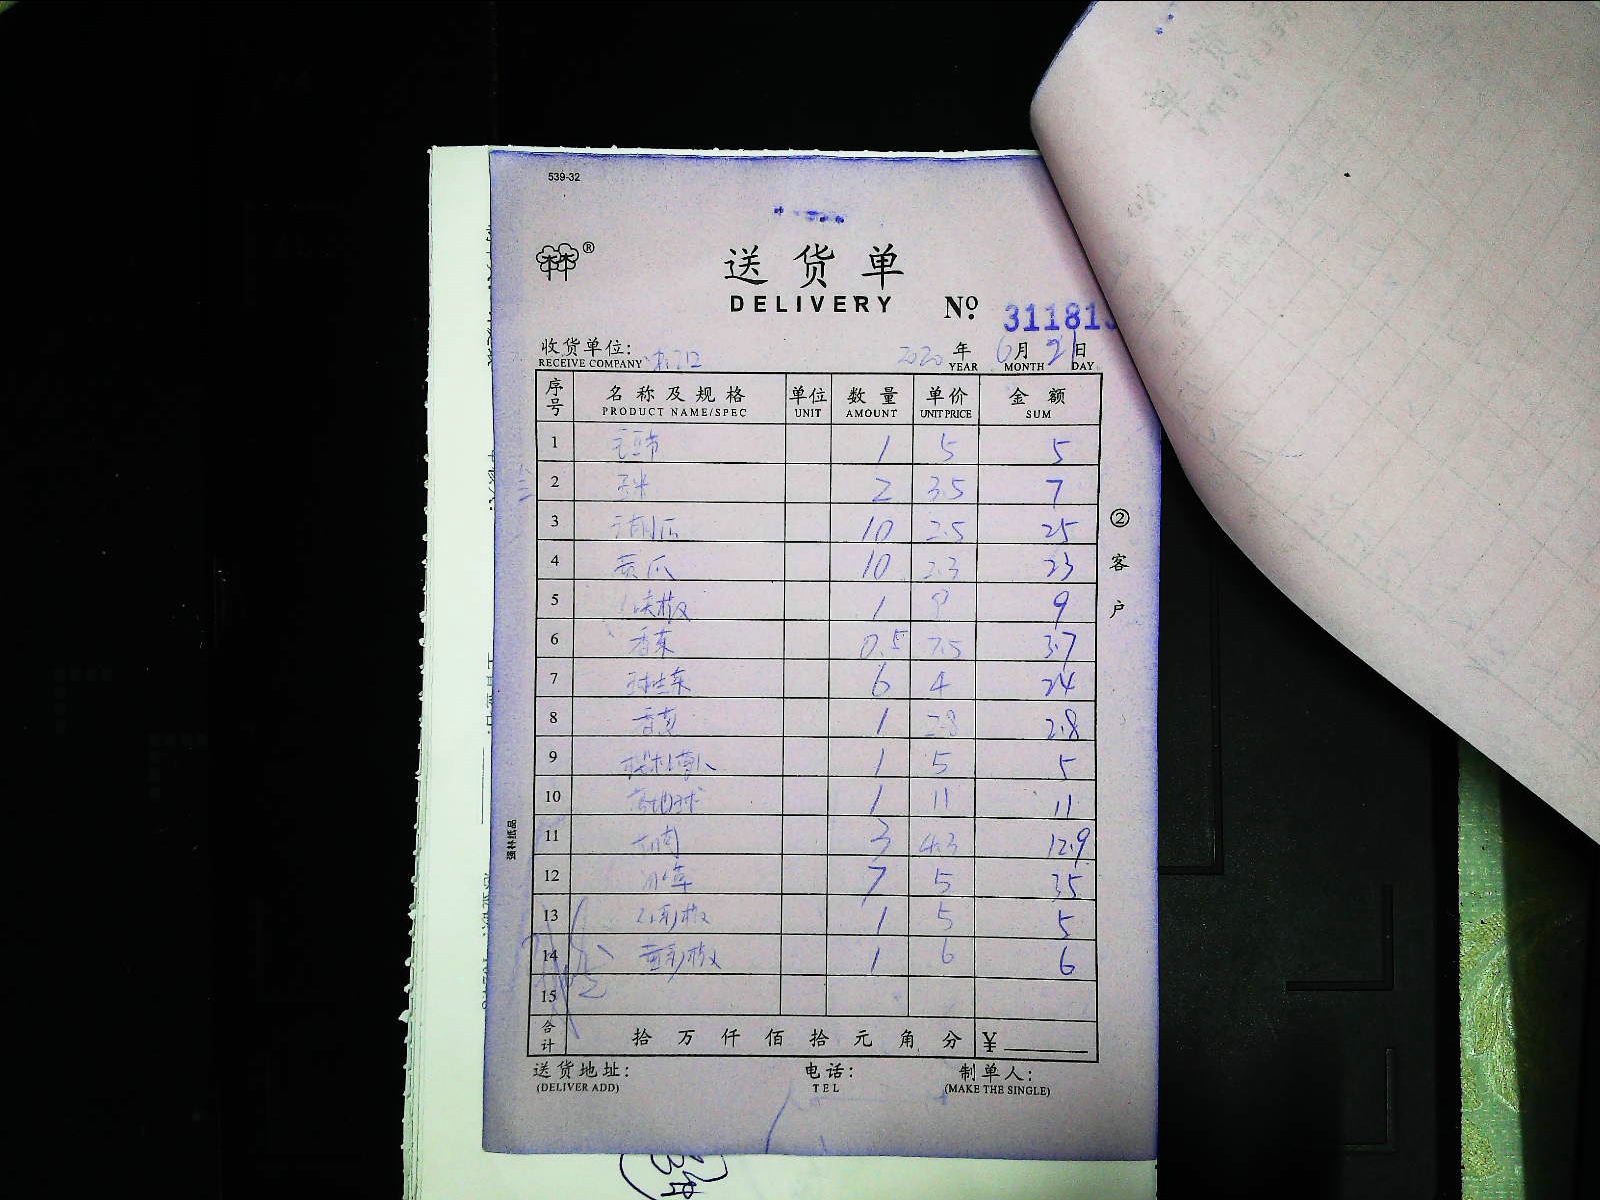 539-32
林®
送货单
DELIVERY № 31181
收货单位: 2020 年 6 月 21 日
RECEIVE COMPANY YEAR MONTH DAY
序号 名称及规格 单位 数量 单价 金额
PRODUCT NAME/SPEC UNIT AMOUNT UNIT PRICE SUM
1 毛豆节 1 5 5
2 玉米 2 3.5 7
3 10 2.5 25
4 黄瓜 10 2.3 23
5 1 9 9
6 香菜 0.5 7.5 3.7
7 球生菜 6 4 24
8 香芹 1 2.8 2.8
9 1 5 5
10 1 11 11
11 3 4.3 12.9
12 7 5 35
13 红彩椒 1 5 5
14 黄彩椒 1 6 6
15
合计 拾 万 仟 佰 拾 元 角 分 ¥
送货地址: 电话: 制单人:
(DELIVER ADD) TEL (MAKE THE SINGLE)
②客户
强林纸品